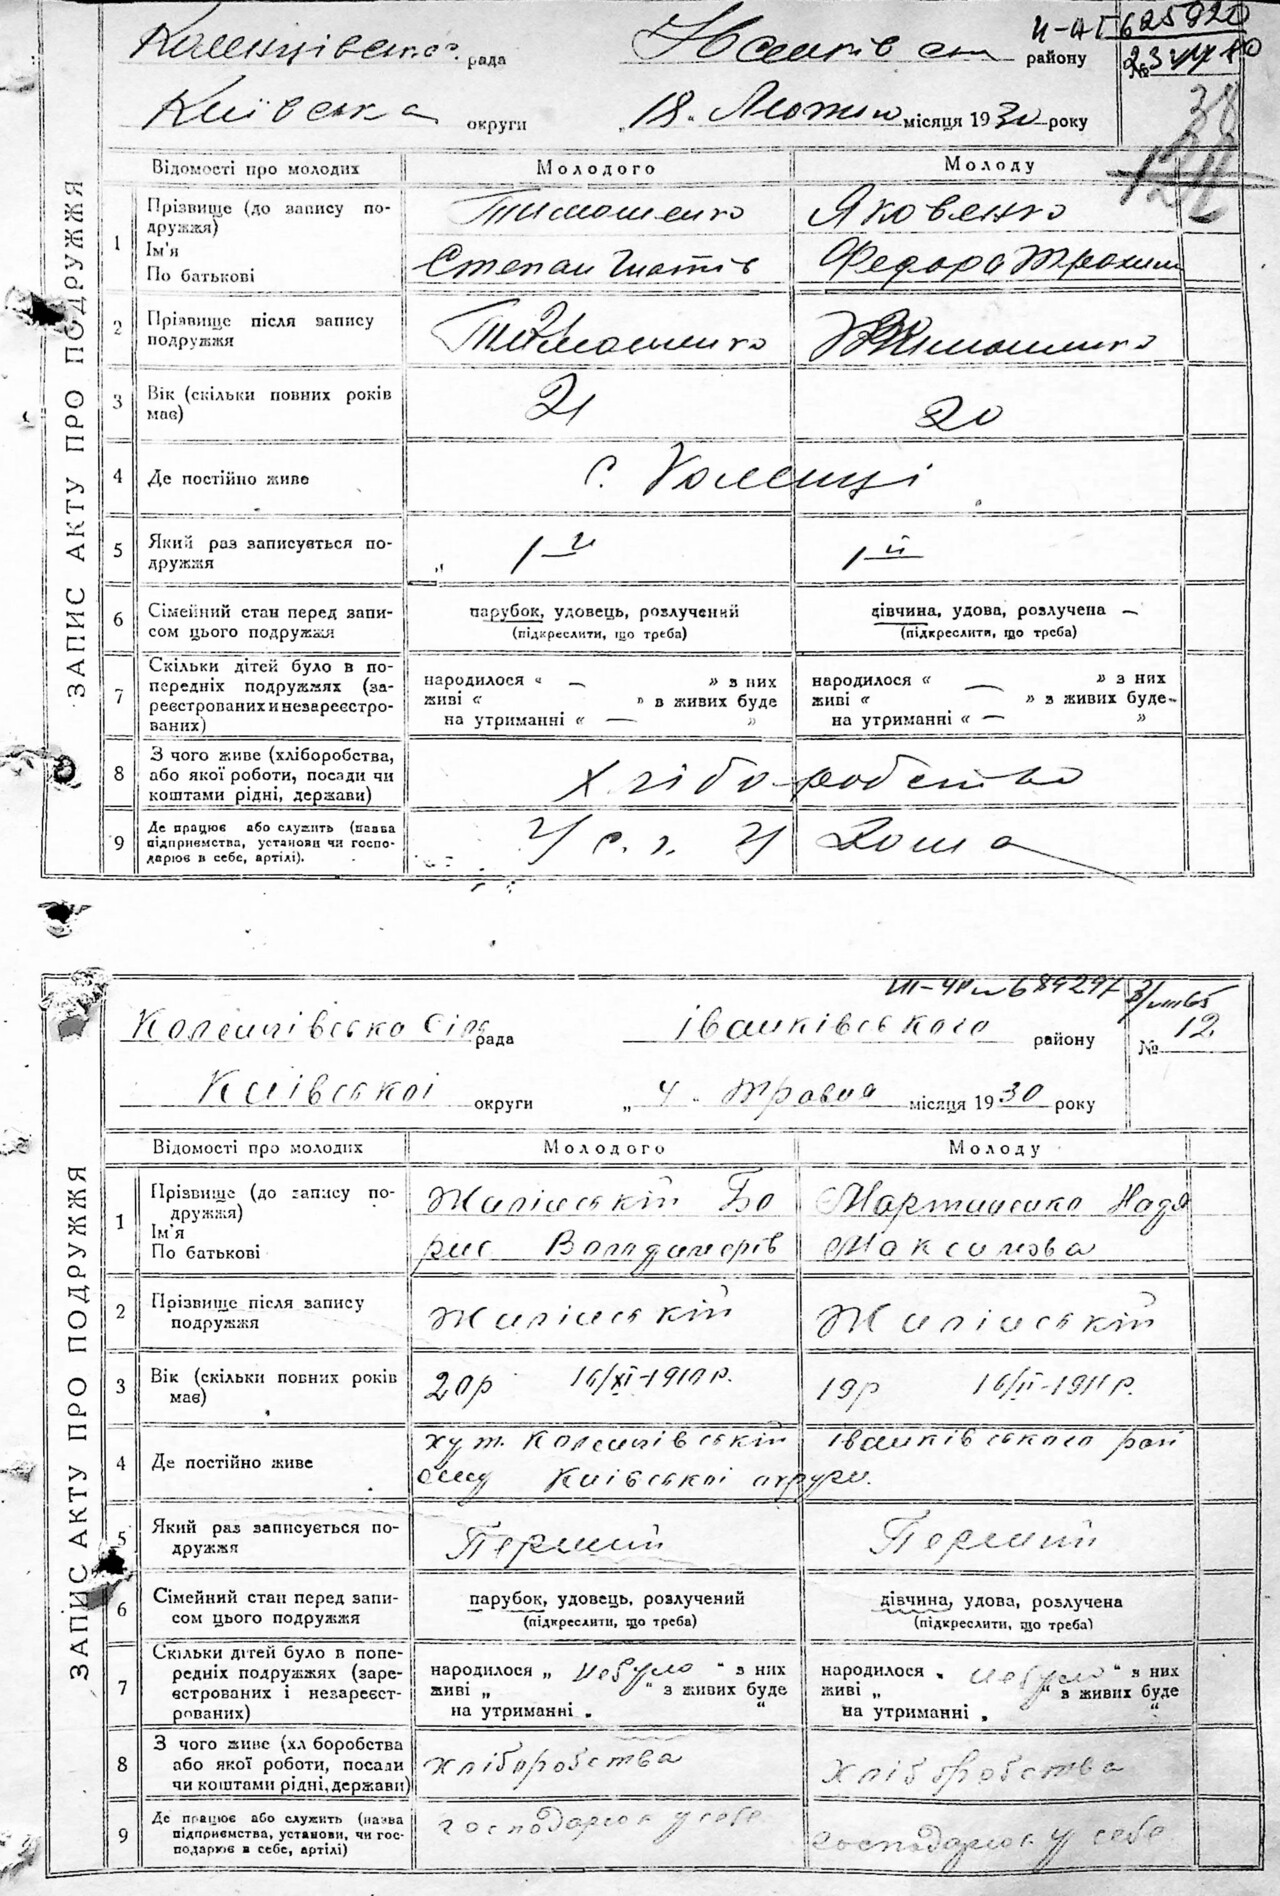 рада району
Київська округи „18. Лютого місяця 1930 року
ЗАПИС АКТУ ПРО ПОДРУЖЖЯ
Відомості про молодих Молодого Молоду
1 Прізвище (до запису по-
дружжя)
Ім'я
По батькові
Тимошенко Яковенко
Степан Федора
2 Прізвище після запису
подружжя
Тимошенко Тимошенко
3 Вік (скільки повних років
має)
21 20
4 Де постійно живе с.
5 Який раз записується по-
дружжя
1й 1й
6 Сімейний стан перед запи-
сом цього подружжя
парубок, удовець, розлучений дівчина, удова, розлучена —
(підкреслити, що треба) (підкреслити, що треба)
7 Скільки дітей було в по-
передніх подружжях (за-
реєстрованих и незареєстро-
ваних)
народилося “ — ” з них народилося “ — ” з них
живі “ ” в живих буде живі “ ” з живих буде
на утриманні “ — ” на утриманні “ — ”
8 З чого живе (хліборобства,
або якої роботи, посади чи
коштами рідні, держави)
Хліборобство
9 Де працює або служить (назва
підприємства, установи чи госпо-
дарює в себе, артілі).
У с. г. У дома
сіль рада Іванківського району № 12
Київської округи „4. травня місяця 1930 року
ЗАПИС АКТУ ПРО ПОДРУЖЖЯ
Відомості про молодих Молодого Молоду
1 Прізвище (до запису по-
дружжя)
Ім'я
По батькові
Жилінській Бо Мартиненко Надя
рис Володимерів Максимова
2 Прізвище після запису
подружжя
Жилінській Жилінській
3 Вік (скільки повних років
має)
20р 16/XI-1910 р. 19р 16/II-1911 р.
4 Де постійно живе
хут. Іванківського рай
Київської округи.
5 Який раз записується по-
дружжя
Перший Перший
6 Сімейний стан перед запи-
сом цього подружжя
парубок, удовець, розлучений дівчина, удова, розлучена
(підкреслити, що треба) (підкреслити, що треба)
7 Скільки дітей було в попе-
редніх подружжях (заре-
єстрованих і незареєст-
рованих)
народилося „ небуло “ з них народилося „ небуло “ з них
живі „ “ з живих буде живі „ “ з живих буде
на утриманні „ “ на утриманні „ “
8 З чого живе (хл боробства
або якої роботи, посади
чи коштами рідні, держави)
хліборобства хліборобства
9 Де працює або служить (назва
підприємства, установи, чи гос-
подарює в себе, артілі)
господарює у себе господарює у себе